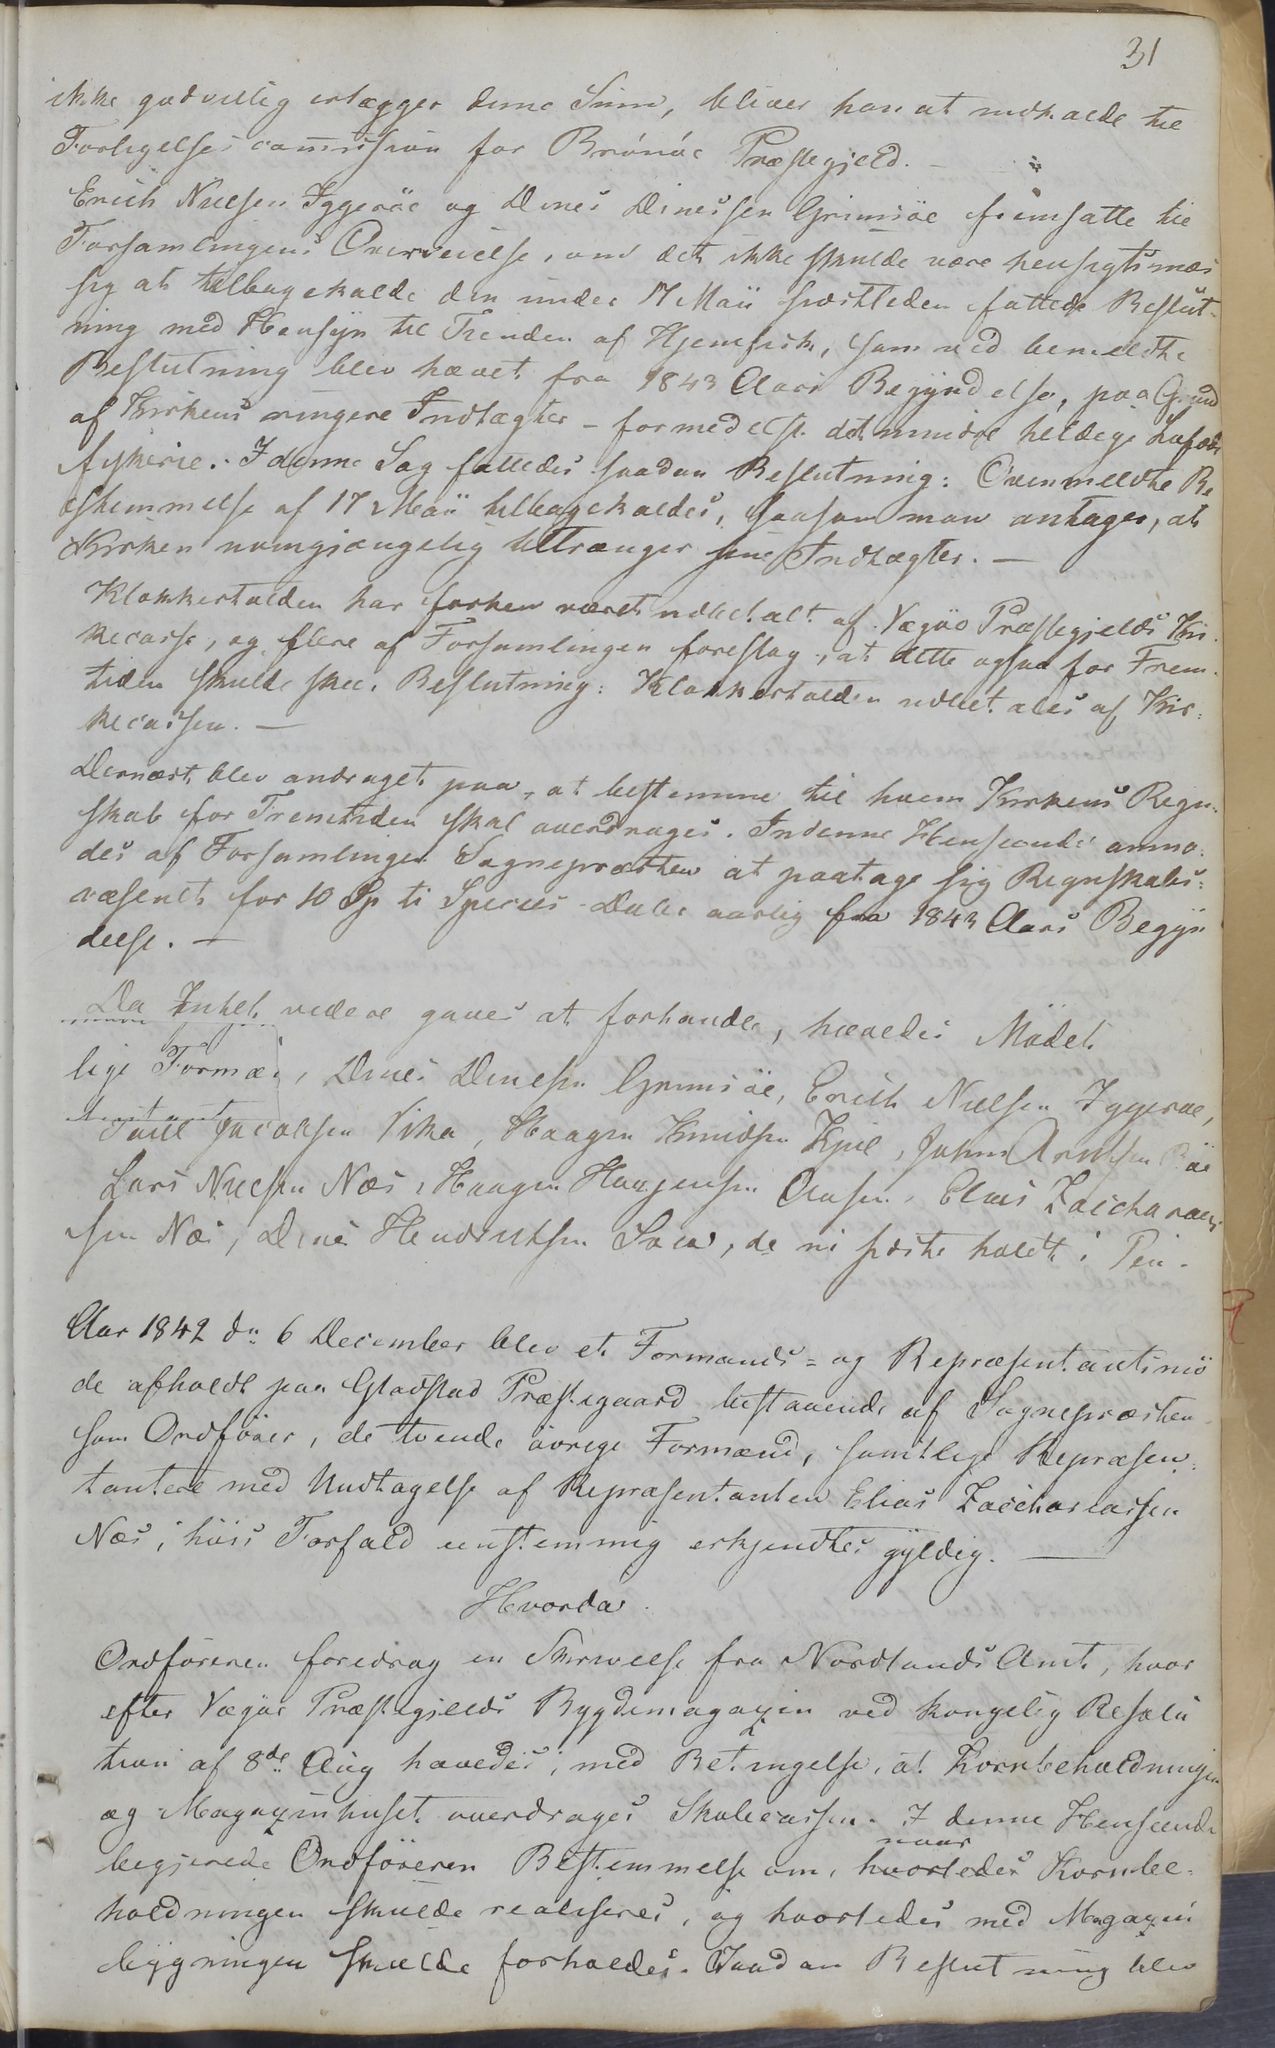 31
ikke godvillig erlægger denne Sum, bliver han at indkalde til
Forligelsescommission for Brönöe Præstegjeld. —
Erich Nielsen Iggeröe og Dines Dinessen Grimsöe fremsatte til
Forsamlingens Overveielse, om det ikke skulde være hensigtsmæs
sig at tilbagekalde den under 17 Maii sidstleden fattede Beslut-
ning med Hensyn til Tienden af Hjemfisk, som ved bemeldte
Beslutning blev hævet fra 1843 Aars Begyndelse, paa Grund
af Kirkens ringere Indtægter – formedelst det mindre heldige
fiskerie. I denne Sag fattedes saadan Beslutning: Ovenmeldte Be
stemmelse af 17 Maii tilbagekaldes, saasom man antager, at
Kirken uomgjængelig tiltrænger sine Indtægter. —
Klokkertolden har forhen været udbetalt af Vegöe Præstegjelds Kir-
kecasse, og flere af Forsamlingen foreslog, at dette ogsaa for Frem-
tiden skulde skee. Beslutning: Klokkertolden udbetales af Kir-
kecassen. —
Dernæst blev andraget paa, at bestemme til hvem Kirkens Regn-
skab for Fremtiden skal overdrages. I denne Henseende anmo-
des af Forsamlingen Sognepræsten at paatage sig Regnskabs-
væsenet for 10 Sp ti Species Daler aarlig fra 1843 Aars Begyn
delse. —
Da Intet videre gaves at forhandle, hævedes Mödet.
lige Formæ, Dines Dinesen Grimsöe, Erich Nielsen Iggeröe,
Poul Jacobsen Vika, Haagen Knudsen Kjul, John Arntsen
Lars Nielsen Næs, Haagen Haagensen Aasen, Elias Zacharias
sen Næs, Dines Hendriksen, de ni sidste holdt i Pen.
Aar 1842 dn 6 December blev et Formands- og Repræsentantmö
de afholdt paa Gladstad Præstegaard bestaaende af Sognepræsten
som Ordförer, de tvende övrige Formænd, samtlige Repræsen-
tantere med Undtagelse af Repræsentanten Elias Zacchariassen
Næs, hvis Forfald eenstemmig erkjendtes gyldig. —
Hvorda
Ordföreren foredrog en Skrivelse fra Nordlands Amt, hvor
efter Vegöe Præstegjelds Bygdemagazin ved kongelig Resolu
tion af 8de Aug hævedes, med Betingelse, at Kornbeholdningen
og Magazinhuset overdrages Skolecassen. I denne Henseende
naar
begjerede Ordföreren Bestemmelse om, hvorledes Kornbe-
holdningen skulde realiseres, og hvorledes med Magazin
bygningen skulde forholdes. Saadan Beslutning blev